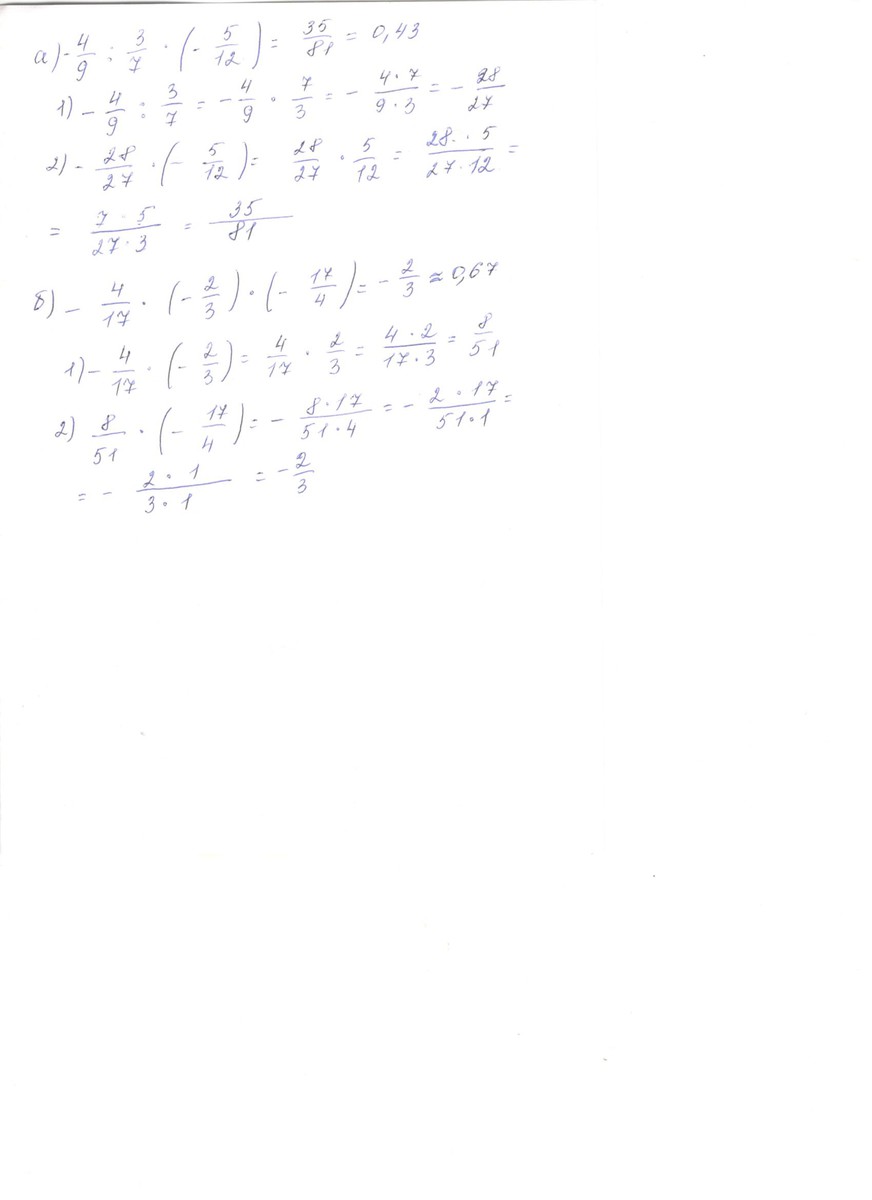 а) - 4/9 : 3/7 · (- 5/12) = 35/81 = 0,43
1) - 4/9 : 3/7 = - 4/9 · 7/3 = - 4·7/9·3 = - 28/27
2) - 28/27 · (- 5/12) = 28/27 · 5/12 = 28·5/27·12 =
= 7·5/27·3 = 35/81
б) - 4/17 · (- 2/3) · (- 17/4) = - 2/3 ≈ 0,67
1) - 4/17 · (- 2/3) = 4/17 · 2/3 = 4·2/17·3 = 8/51
2) 8/51 · (- 17/4) = - 8·17/51·4 = - 2·17/51·1 =
= - 2·1/3·1 = - 2/3